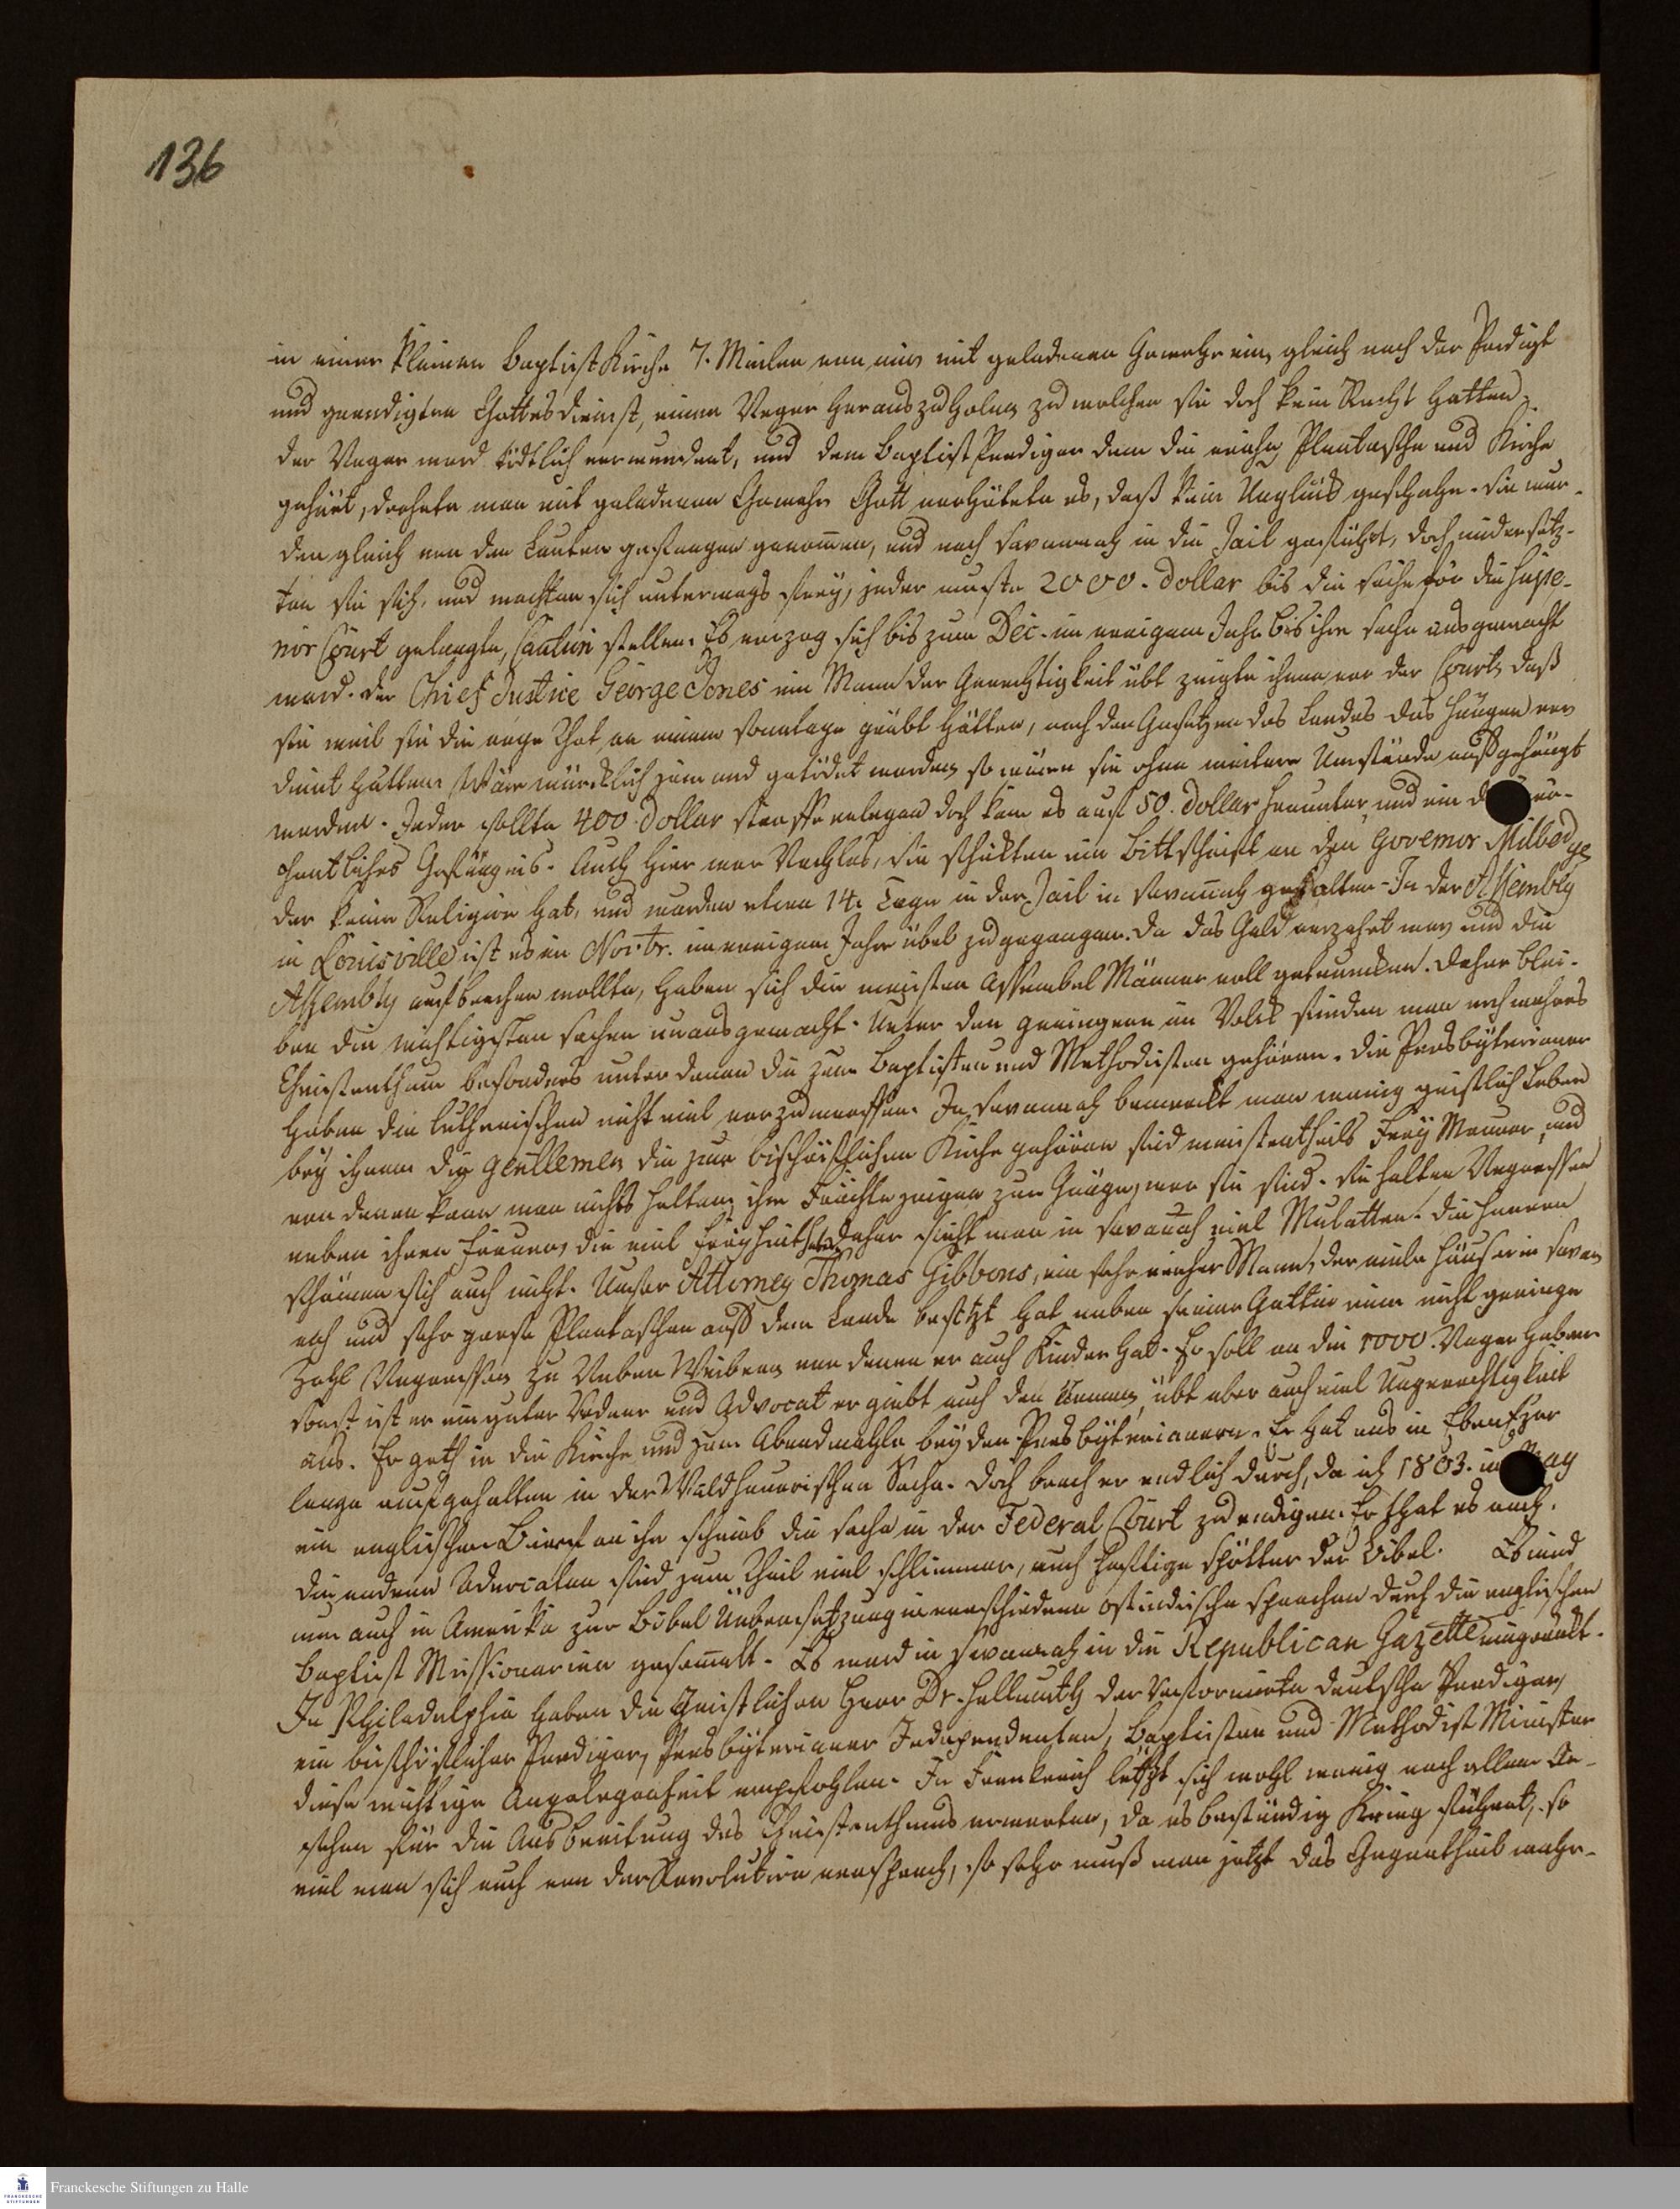 136
in einer kleinen Baptist Kirche 7. Meilen von mir mit geladenen Gewehr ein, gleich nach der Predigt
und geendigten Gottesdienst, einen Neger herauszuholen zu welchen sie doch kein Recht hatten,
der Neger ward tödtlich verwundet, und dem Baptist Prediger dem die reiche Plantasche und Kirche
gehört, drohete man mit geladenen Gewehr Gott verhütete es, daß kein Unglück geschahe. Sie wur-
den gleich von den Leuten gefangen genommen, und nach Savannah in die Jail geführt, doch widersetz-
ten sie sich, und machten sich unterwegs frey, jeder muste 2000. Dollar bis die Sache für die Supe-
rior Court gelangte, Caution stellen. Es verzog sich bis zum Dec. im vorigem Jahr bis ihre Sache ausgemacht
ward. Der Chief Justice George Jones ein Mann der Gerechtigkeit übt zeigte ihnen vor der Court, daß
sie weil sie die arge That an einem Sonntage geübt hätten, nach den Gesetzen des Landes das Hängen ver
dient hätten. Wäre würcklich jemand getödtet worden, so wären sie ohne weitere Umstände aufgehängt
worden. Jeder sollte 400 Dollar straffe erlegen doch kam es auf 50. Dollar herunter, und ein
chentliches Gefängnis. Auch hier war Nachlas, sie schickten ein Bittschrift an den Governor Milledge
der keine Religion hat, und wurden etwa 14. Tage in der Jail in Savannah gehalten - In der Assembly
in Louisville ist es im Novbr. im vorigem Jahre übel zugegangen. Da das Geld verzehrt war und die
Assembly aufbrechen wollte, haben sich die meisten Assembel Männer voll getruncken. Daher blei-
ben die wichtigsten Sachen unausgemacht. Unter den geringern im Volck finden man noch wahres
Christenthum besonders unter denen die zum Baptisten und Methodisten gehören. Die Presbyterianer
haben die Lutherischen nicht viel vorzuwerffen. In Savannah bemerckt man wenig geistlich Leben
bey ihnen die Gentlemen die zur bischöflichen Kirche gehören sind meistentheils Frey Maurer, und
von denen kann man nichts halten, ihre Früchte zeigen zur Gnüge, wer sie sind. Sie halten Negressen
neben ihren Frauens die viel Freyheit haben daher sieht man in Savanah viel Mulatten. Die Herren
schämen sich auch nicht. Unser Attorney Thomas Gibbons, ein sehr reicher Mann, der viele Häuser in Savan
nah und sehr grose Plantaschen auf dem Lande besitzt hat neben seiner Gattin eine nicht geringe
Zahl Negressen zu Neben Weibern von denen er auch Kinder hat. Er soll an die 1000. Neger haben
sonst ist er ein guter Redner und Advocat er giebt auch den Armen, übt aber auch viel Ungerechtigkeit
aus. Er geth in die Kirche und zum Abendmahle bey den Presbyterianern. Er hat uns in Ebenezer
lange aufgehalten in der Waldhauerischen Sache. Doch brach er endlich durch, da ich 1803. im May
ein englischen Brief an ihn schrieb die Sache in der Federal Court zu endigen. Er that es auch.
Die andern Advocaten sind zum Theil viel schlimmer, auch heftige Spötter der Bibel. Es wird
nun auch in Amerika zur Bibel Uebersetzung in verschiedene ostindische sprachen durch die englischen
Baptist Missionarien gesammelt. Es ward in Savannah in die Republican Gazette eingerückt.
In Philadelphia haben die Geistlichen Herr Dr. Hellmuth der Reformirte deutsche Prediger,
ein bischöflicher Prediger, Presbyterianer Independenten, Baptisten und Methodist Minister
diese wichtige Angelegenheit empfohlen. In Franckreich lässt sich wohl wenig nach allem An-
sehen für die Ausbreitung des Christenthums erwarten, da es beständig Krieg führet, so
viel man sich auch von der Revolution versprach, so sehr muß man jetzt das Gegentheil wahr-
Franckesche Stiftungen zu Halle